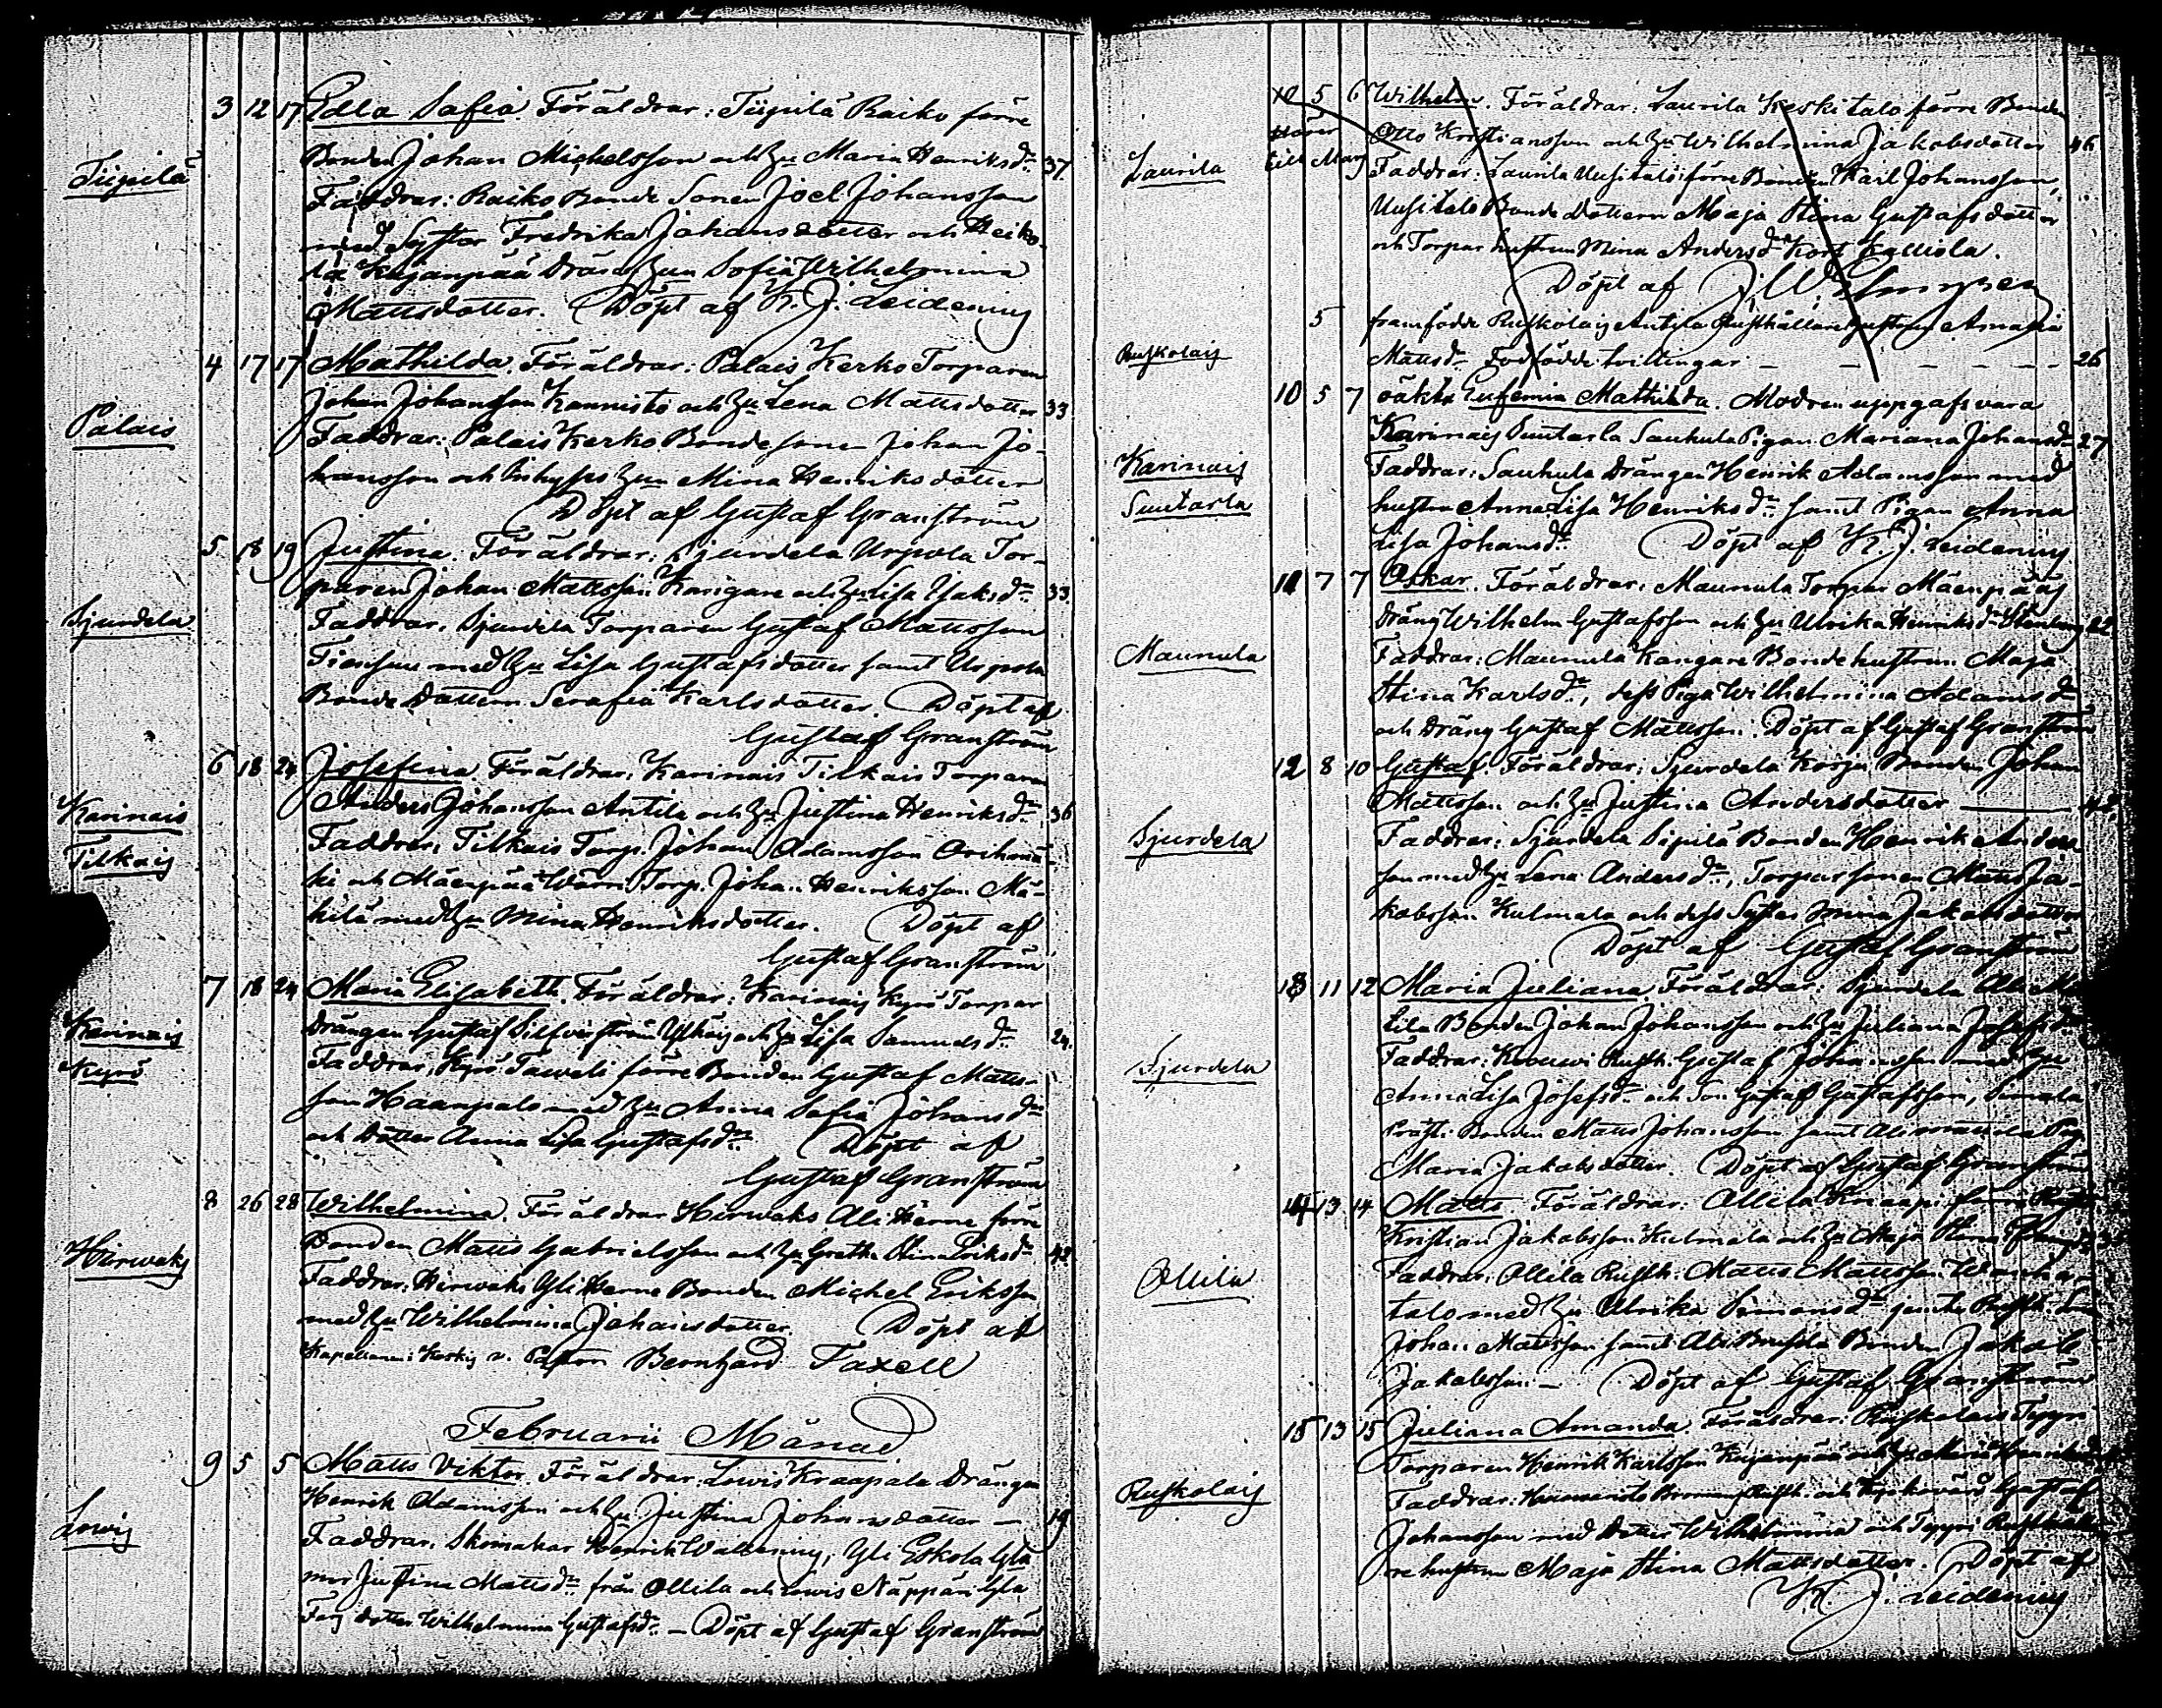 3 12 17 Edla Sofia. Föräldrar: Tiipilä Raiko förre
Bonden Johan Michelsson och Hu Maria Henriksdr 37
Tiipilä
Faddrar: Raiko Bonde Sonen Joel Johansson
med Syster Fredrika Johansdotter och Heiko-
la Kujanpää Dräng Hun Sofia Wilhelmina
Mattsdotter. Döpt af K. J. Leidenius
4 17 17 Mathilda. Föräldrar: Palais Kerko Torparen
Johan Johansson Kannisto och Hu Lena Mattsdotter 33
Palais
Faddrar: Palais Kerko Bondesonen Johan Jo-
hansson och Hun Mina Henriksdotter
Döpt af Gustaf Granström
5 18 19 Justina. Föräldrar: Sjurdela Urpola Tor-
paren Johan Mattsson Kangare och Hu Lisa Isaksdr 33
Sjurdela
Faddrar: Sjurdela Torparen Gustaf Mattsson
med Hu Lisa Gustafsdotter samt Urpola
Bonde Dottern Serafia Karlsdotter. Döpt af
Gustaf Granström
6 18 24 Josefina. Föräldrar: Karinais Tilkais Torparen
Anders Johansson Antila och Hu Justina Henriksdr 36
Karinais
Tilkais
Faddrar: Tilkais Torp. Johan Adamsson Orihmä-
ki och Mäenpää Wärri Torp. Johan Henriksson Mä-
kilä med Hu Mina Henriksdotter. Döpt af
Gustaf Granström
7 18 24 Maria Elisabeth. Föräldrar: Karinais Kyrö Torpar
Drängen Gustaf Silfverström och Hu Lisa Samuelsdr 24.
Karinais
Kyrö
Faddrar: Kyrö Taweli förre Bonden Gustaf Matts-
son Haanpalo med Hu Anna Sofia Johansdr
och Dotter Anna Lisa Gustafsdr Döpt af
Gustaf Granström
8 26 28 Wilhelmina. Föräldrar Hirwaks Ali Herne förre
Bonden Matts Gabrielsson och Hu Gretha Stina Eriksdr 42
Hirwaks
Faddrar: Hirwaks Yli Herne Bonden Michel Eriksson
med Hu Wilhelmina Johansdotter. Döpt af
Kapellanen i Koskis v. Pastorn Bernhard Taxell
Februarii Månad
9 5 5 Matts Viktor. Föräldrar: Lowis Kraapala Drängen
Henrik Adamsson och Hu Justina Johansdotter — 19
Lowis
Faddrar: Skomakar Henrik Wallenius, Yli Eskola
Justina Mattsdr från Ollila och Lowis Näppäri
dotter Wilhelmina Gustafsdr — Döpt af Gustaf Granström
10 5 6 Wilhelm. Föräldrar: Laurila Keskitalo förre Bonden
Otto Kristiansson och Hu Wilhelmina Jakobsdotter 46
hörer till Mars
Laurila
Faddrar: Laurila Uusitalo förre Bonden Karl Johansson,
Uusitalo Bonde Dottern Maja Stina Gustafsdotter
och Torpar hustrun Mina Andersdr Kort Kalliola.
Döpt af
5 framfödde Ruskolais Antila Rusthållare hustrun Amalia
Ruskolais
Mattsdr Dödfödde tvillingar — — — 26
10 5 7 oäkta Eufemia Mathilda. Modren uppgafs vara
Karinais Suutarla Saukula Pigan Mariana Johansdr 27
Karinais
Suutarla
Faddrar: Saukula Drängen Henrik Adamsson med
hustru Anna Lisa Henriksdr samt Pigan Anna
Lisa Johansdr Döpt af K. J. Leidenius
11 7 7 Oskar. Föräldrar: Maunula Torpar Mäenpääs
Dräng Wilhelm Gustafsson och Hu Ulrika Henriksdr Stenberg 22
Maunula
Faddrar: Maunula Kangare Bonde hustrun Maja
Stina Karlsdr, dess Piga Wilhelmina Adamsdr
och Dräng Gustaf Mattsson. Döpt af Gustaf Granström
12 8 10 Gustaf. Föräldrar: Sjurdela Korja Bonden Johan
Mattsson och Hu Justina Andersdotter —
Sjurdela
Faddrar: Sjurdela Sipilä Bonden Henrik Anders-
son med Hu Lena Andersdr, Torparsonen Matts Ja-
kobsson Kulmala och dess Syster Mina Jakobsdotter
Döpt af Gustaf Granström
13 11 12 Maria Juliana. Föräldrar: Sjurdela Ali
Bonden Johan Johansson och Hu Juliana Josefsdr
Sjurdela
Faddrar: Rusth. Gustaf Johansson med Hu
Anna Lisa Josefsdr och Son Gustaf Gustafsson, Simala
Bonden Matts Johansson samt
Maria Jakobsdotter. Döpt af Gustaf Granström
14 13 14 Matts. Föräldrar: Ollila Knaapi förre
Kristian Jakobsson Kulmala och Hu Maja Stina
Ollila
Faddrar: Ollila Rusth. Matts Mattsson Wanha-
talo med Hu Ulrika Simonsdr
Johan Mattsson samt Bonden Jakob
Jakobsson. — Döpt af Gustaf Granström
15 13 15 Juliana Amanda. Föräldrar: Ruskolais Tyyri
Torparen Henrik Karlsson Kujanpää och Hu Maria Henriksdr
Ruskolais
Faddrar: Rusth. och Kyrkovärd Gustaf
Johansson med Dotter Wilhelmina och Tyyri Rusthålla-
re hustrun Maja Stina Mattsdotter. Döpt af
K. J. Leidenius